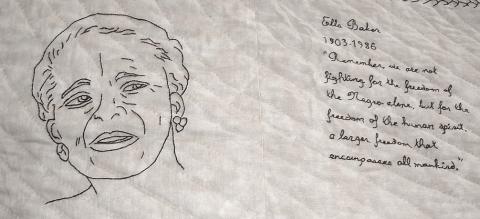 Ella Baker
1903-1986
"Remember, we are not
fighting for the freedom of
the Negro alone, but for the
freedom of the human spirit,
a larger freedom that
encompasses all mankind."